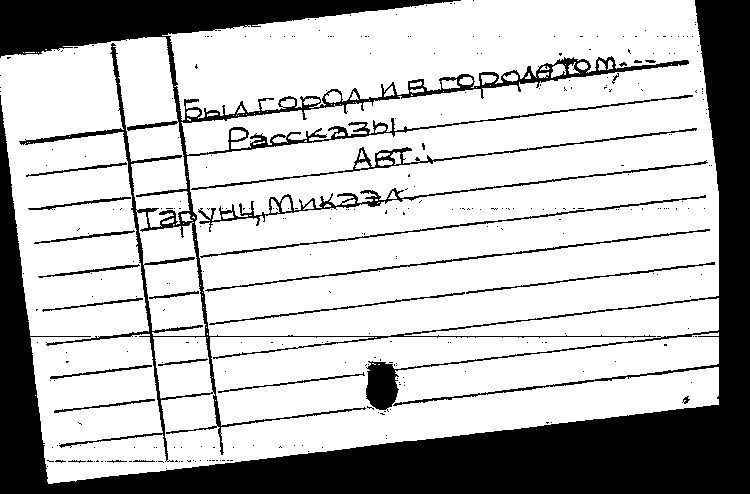 Был город, и в городе том...
Рассказы.
Авт.:
Тарунц, Микаэл.